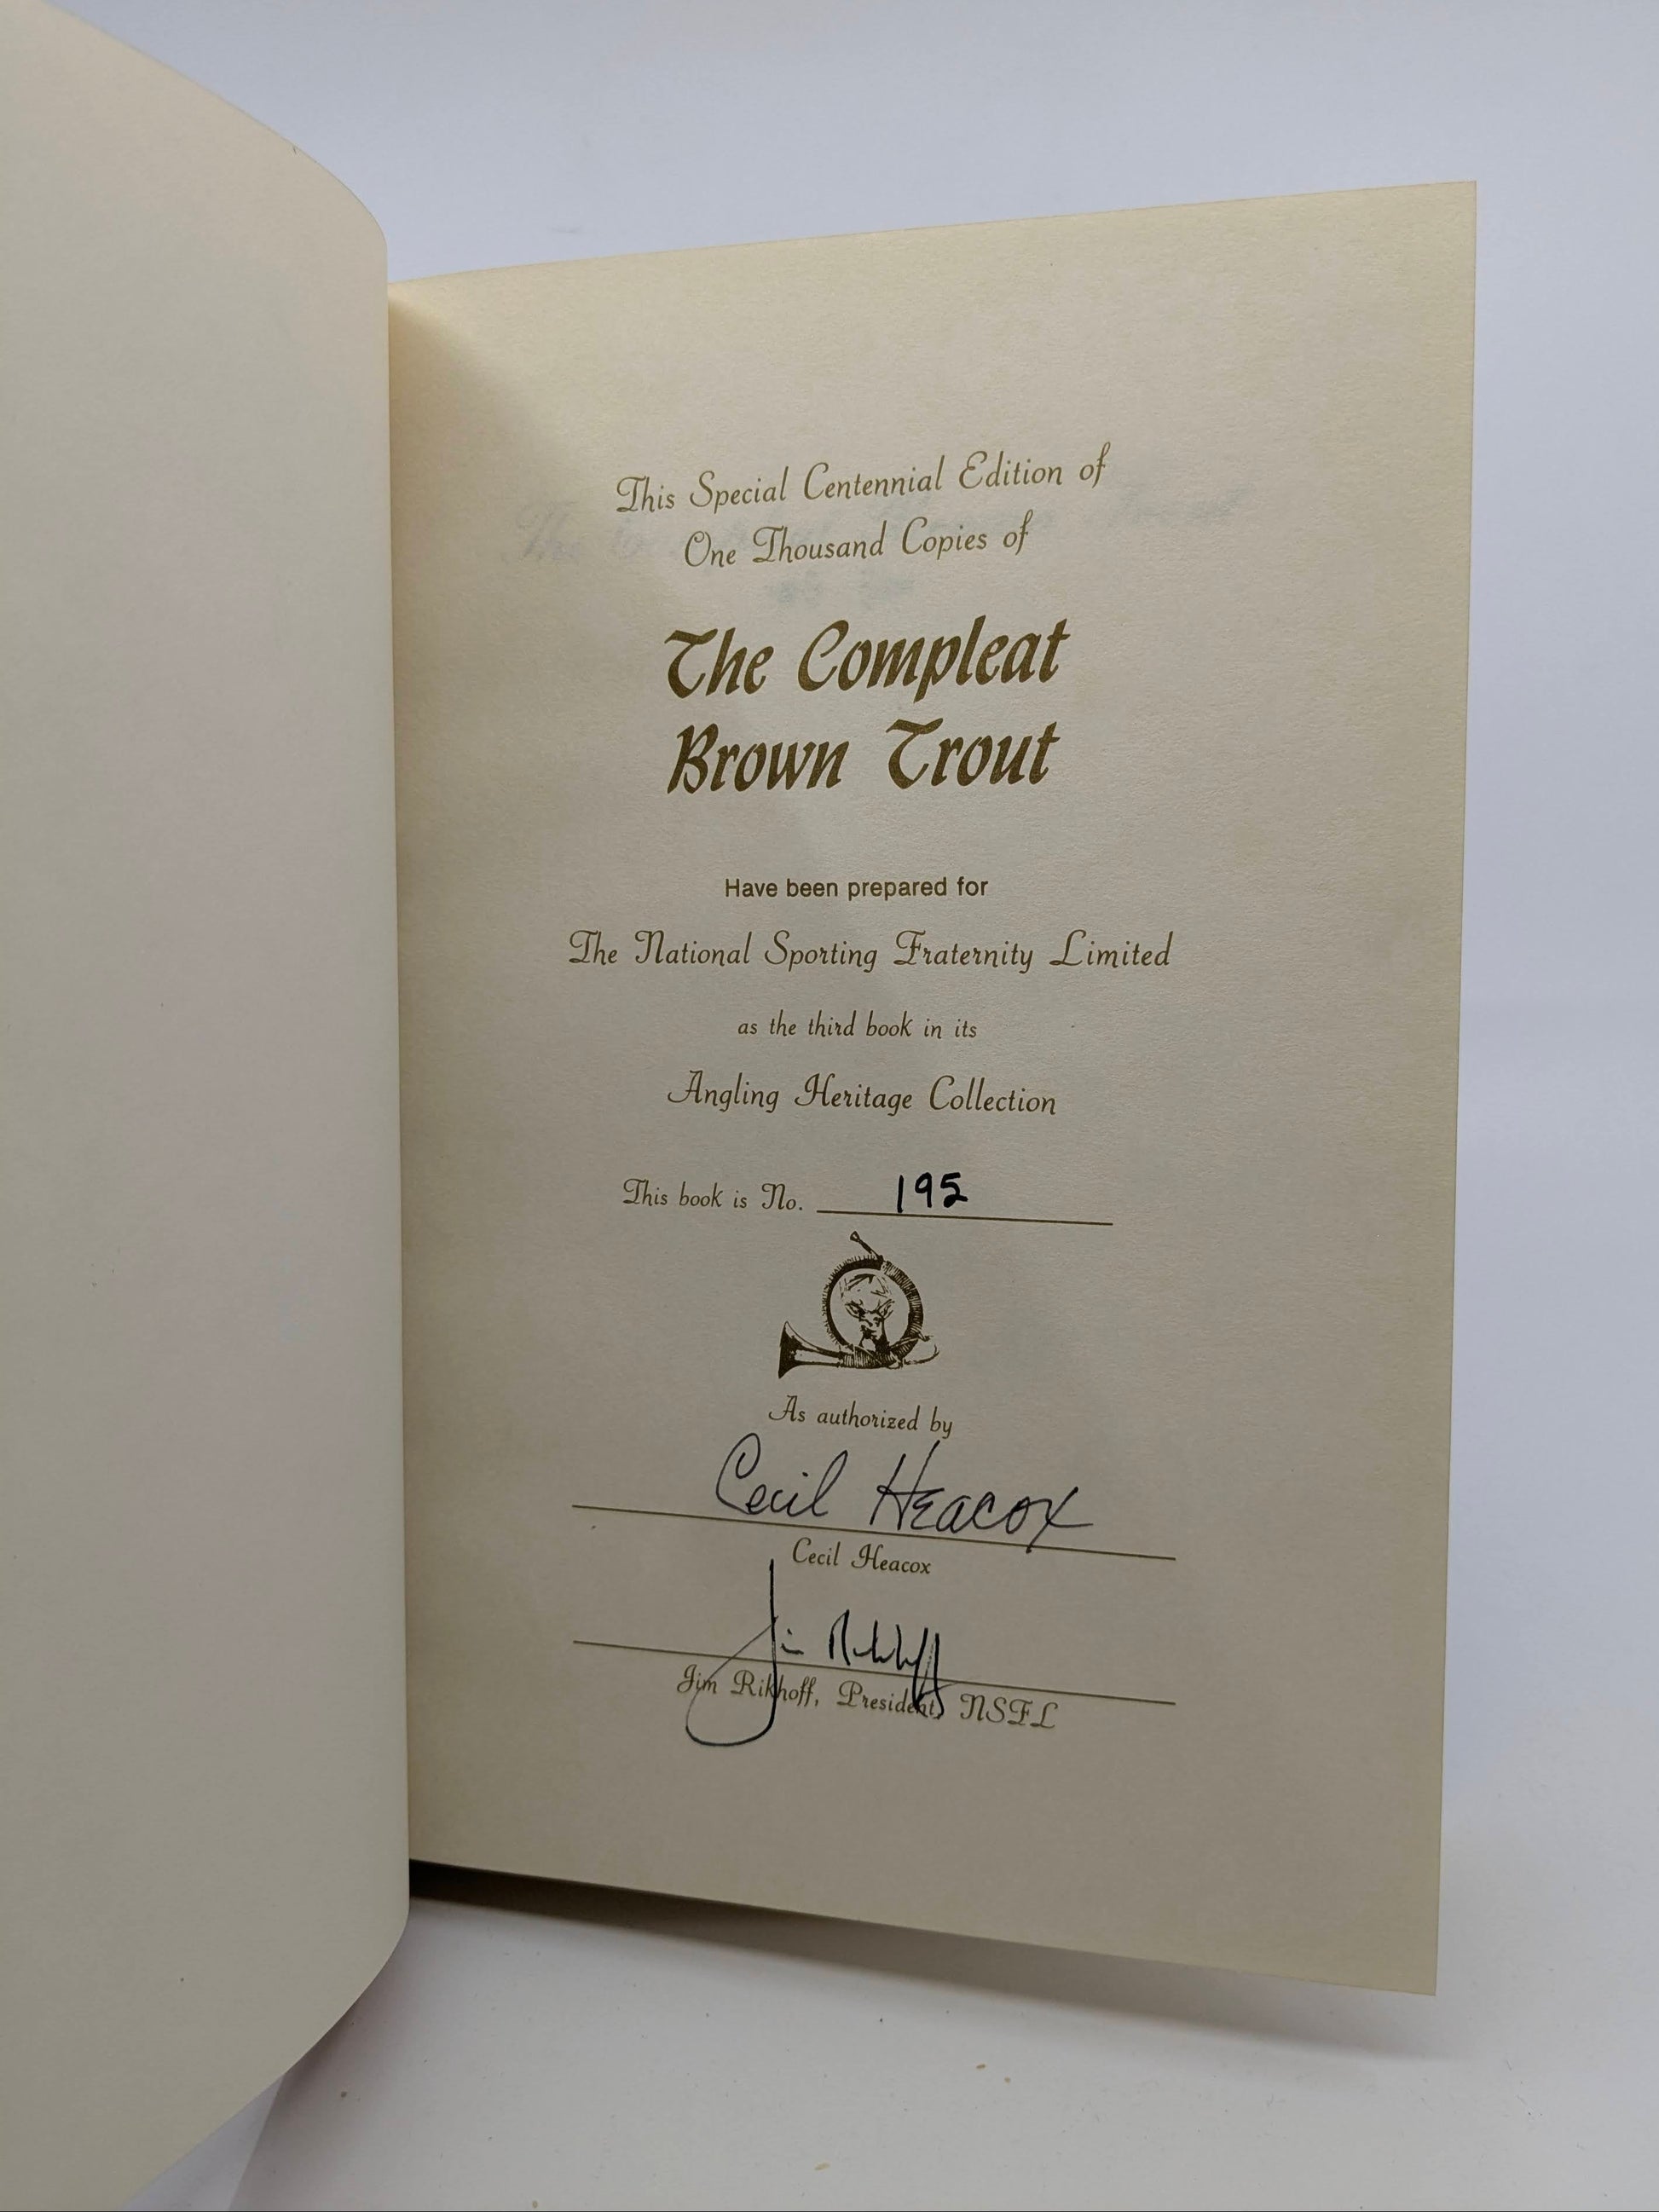 This Special Centennial Edition of
One Thousand Copies of
The Compleat
Brown Trout
Have been prepared for
The National Sporting Fraternity Limited
as the third book in its
Angling Heritage Collection
This book is No. 195
As authorized by
Cecil Heacox
Cecil Heacox
Jim Rikhoff
Jim Rikhoff, President, NSFL